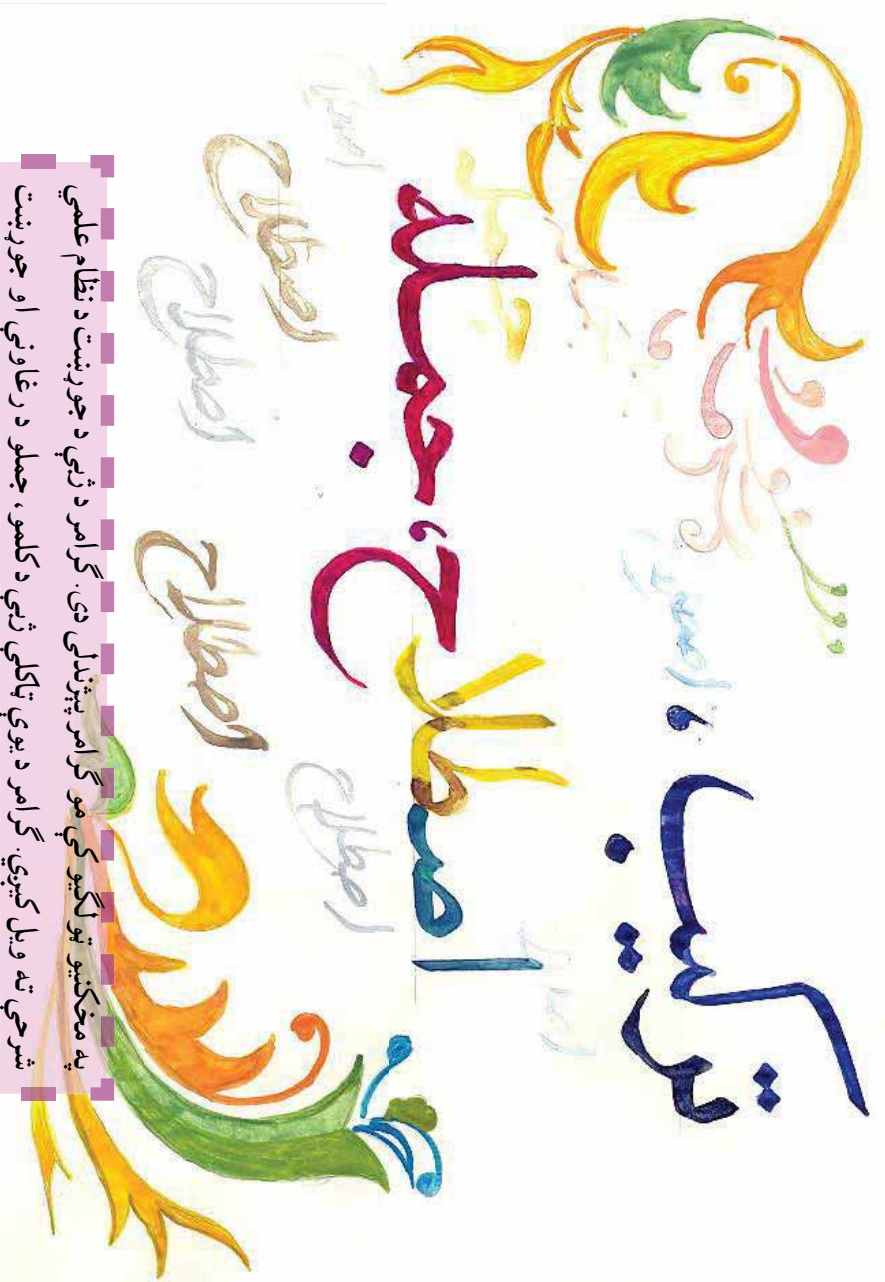 ترکیب،
اصطلاح، جمله
اصطلاح
اصطلاح اصطلاح
اصطلاح اصطلاح
په مخکنیو ټولګیو کې مو ګرامر پېژندلی دی. ګرامر د ژبې د جوړښت د نظام علمي
شرحې ته ویل کېږي. ګرامر د یوې ټاکلې ژبې د کلمو، جملو د رغاونې او جوړښت